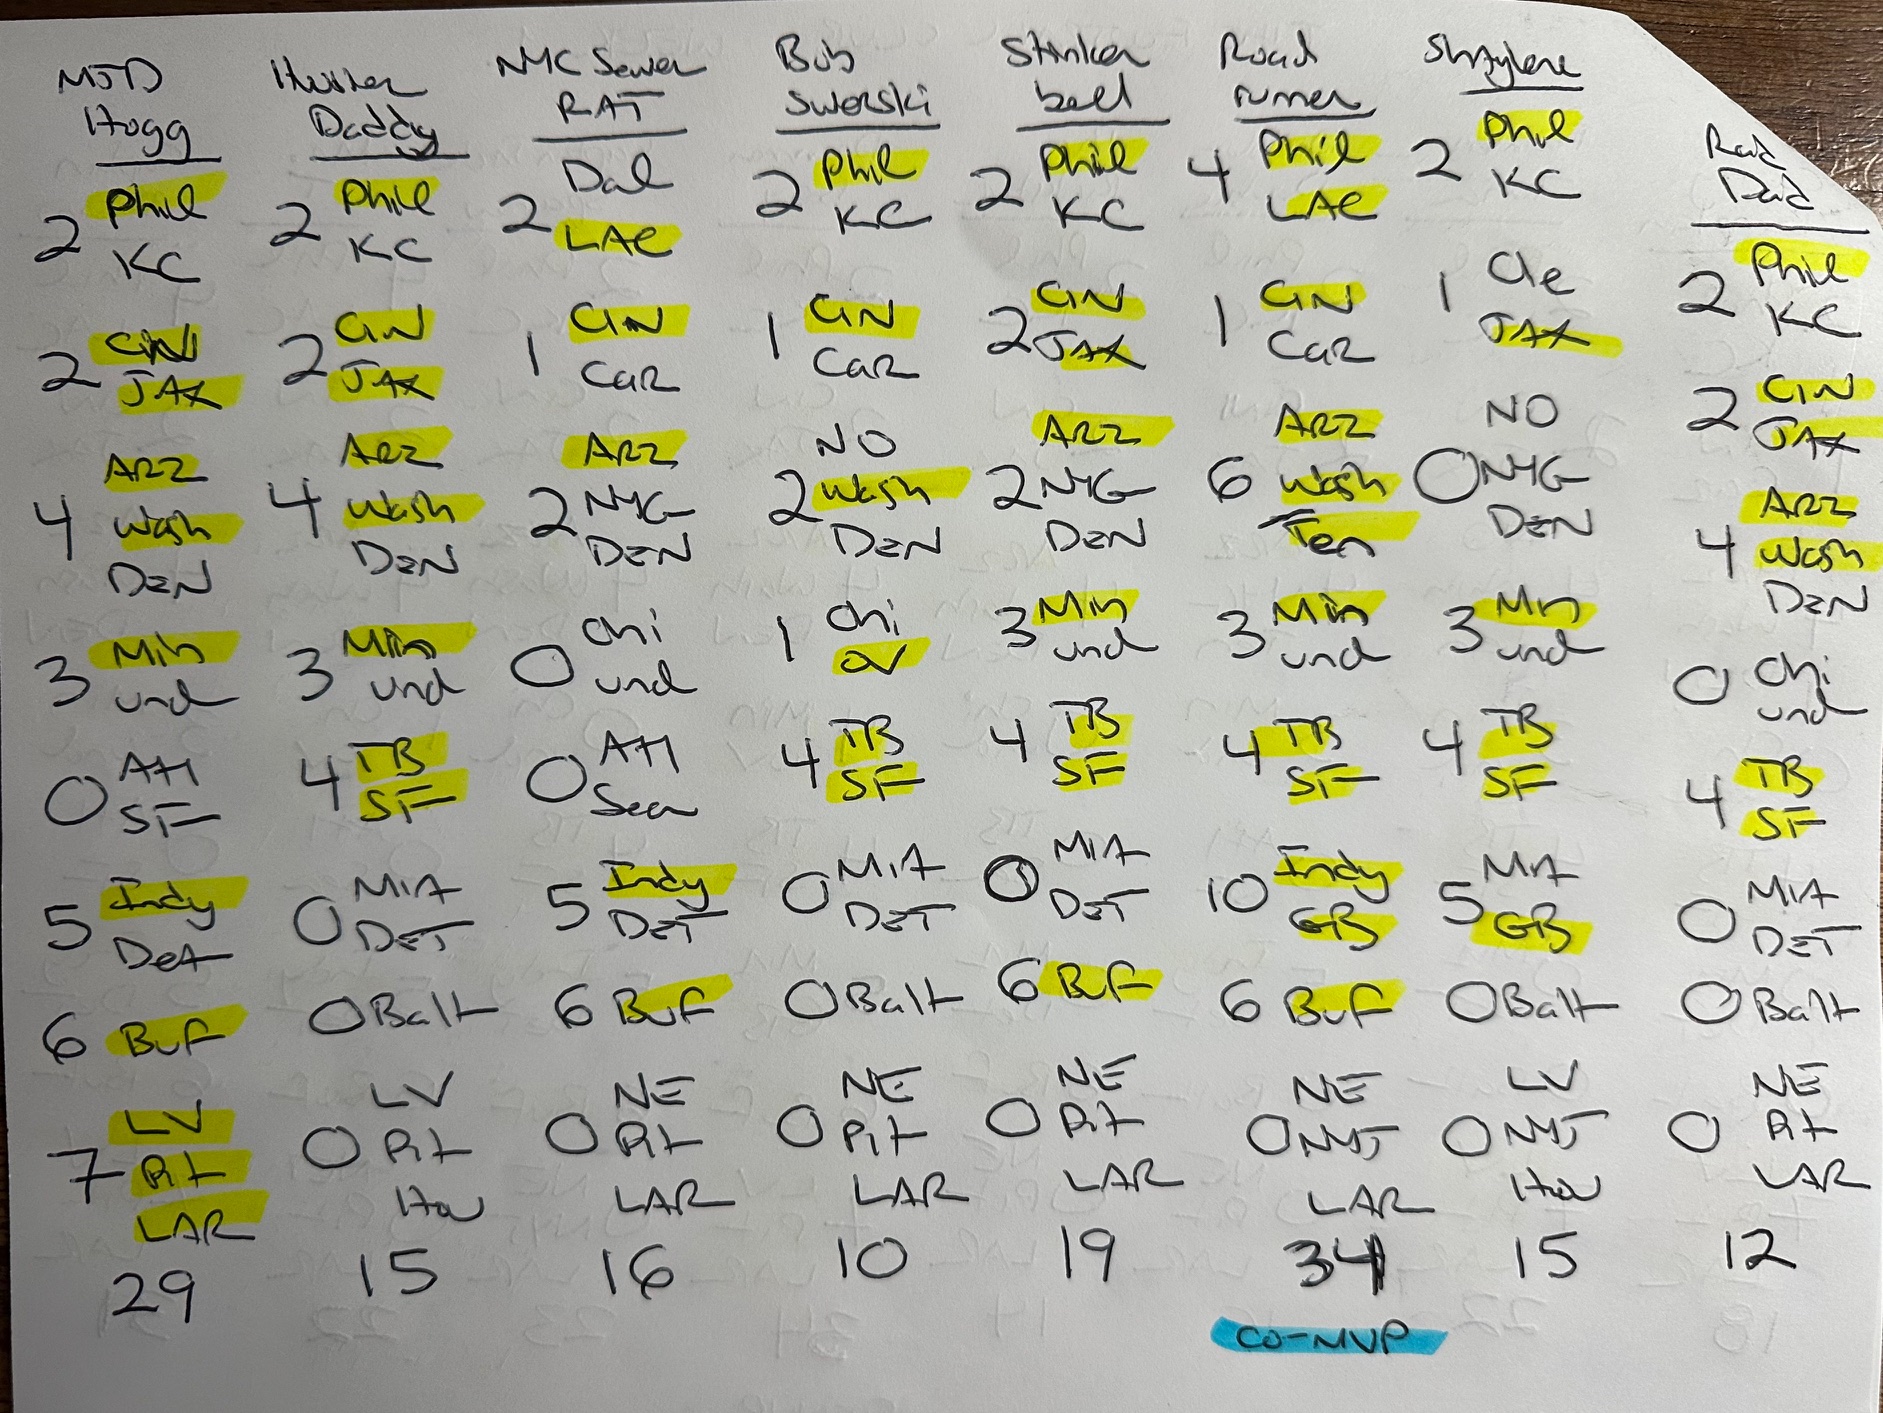 MJD
Hogg
2 Phil
KC
2 CIN
JAX
4 ARZ
Wash
DEN
3 Min
und
0 Atl
SF
5 Indy
Det
6 BUF
7 LV
Pit
LAR
29
Daddy
2 Phil
KC
2 CIN
JAX
4 ARZ
Wash
DEN
3 Min
und
4 TB
SF
0 MIA
DET
0 Balt
0 LV
Pit
Hou
15
NYC Sewer
RAT
2 Dal
LAC
1 CIN
CAR
2 ARZ
NYG
DEN
0 Chi
und
0 Atl
Sea
5 Indy
DET
6 BUF
0 NE
Pit
LAR
16
Bob
Swerski
2 Phil
KC
1 CIN
CAR
2 NO
Wash
DEN
1 Chi
OV
4 TB
SF
0 MIA
DET
0 Balt
0 NE
Pit
LAR
10
Stinker
bell
2 Phil
KC
2 CIN
JAX
2 ARZ
NYG
DEN
3 Min
und
4 TB
SF
0 MIA
DET
6 BUF
0 NE
Pit
LAR
19
Road
runner
4 Phil
LAC
1 CIN
CAR
6 ARZ
Wash
Ten
3 Min
und
4 TB
SF
10 Indy
GB
6 BUF
0 NE
NYJ
LAR
34
CO-MVP
2 Phil
KC
1 Cle
JAX
0 NO
NYG
DEN
3 Min
und
4 TB
SF
5 MIA
GB
0 Balt
0 LV
NYJ
Hou
15
Rad
Dad
2 Phil
KC
2 CIN
JAX
4 ARZ
Wash
DEN
0 Chi
und
4 TB
SF
0 MIA
DET
0 Balt
0 NE
Pit
LAR
12